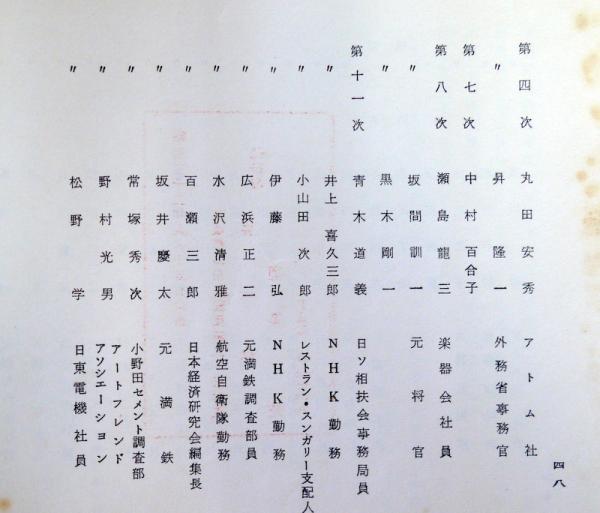 第四次 丸田安秀 アトム社
〃 昇隆一 外務省事務官
第七次 中村百合子
第八次 瀬島龍三 楽器会社員
〃 坂間訓一 元将官
〃 黒木剛一
第十一次 青木道義 日ソ相扶会事務局員
〃 井上喜久三郎 NHK勤務
〃 小山田次郎 レストラン・スンガリー支配人
〃 伊藤弘 NHK勤務
〃 広浜正二 元満鉄調査部員
〃 水沢清雅 航空自衛隊勤務
〃 百瀬三郎 日本経済研究会編集長
〃 坂井慶太 元満鉄
〃 常塚秀次 小野田セメント調査部
〃 野村光男 アートフレンドアソシエーション
〃 松野学 日東電機社員
四八